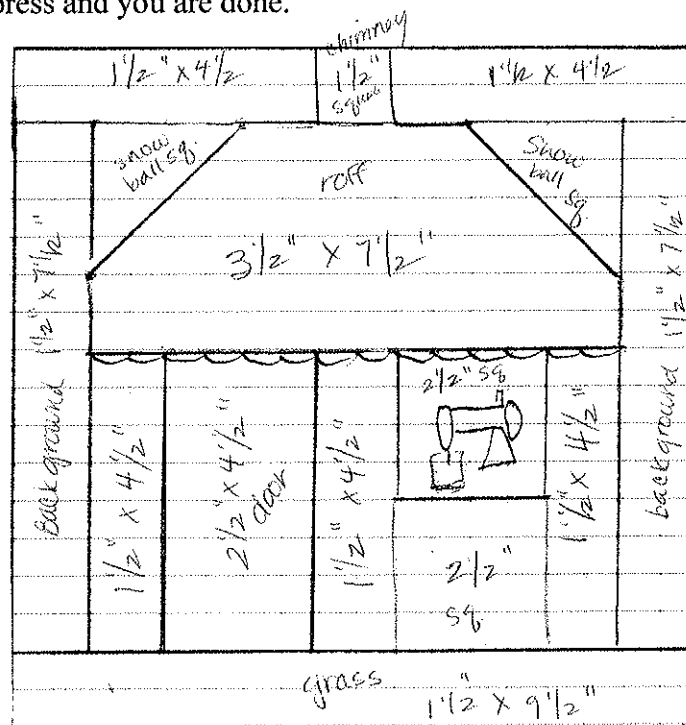 press and you are done.
chimney
1 1/2" x 4 1/2
1 1/2"
square
1 1/2 x 4 1/2
snow
ball sq.
roff
Snow
ball
sq.
3 1/2" x 7 1/2"
Background 1 1/2" x 7 1/2"
background 1 1/2" x 7 1/2"
1 1/2" x 4 1/2"
2 1/2" x 4 1/2"
door
1 1/2" x 4 1/2"
2 1/2" sq
1 1/2" x 4 1/2"
2 1/2"
sq.
grass
1 1/2" x 9 1/2"